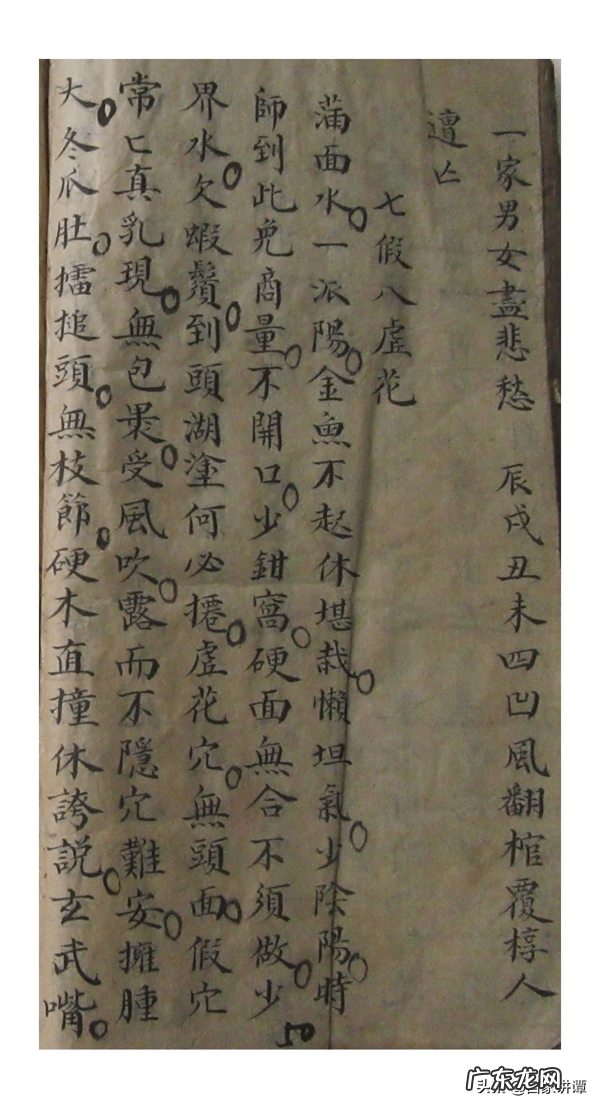 一家男女盡悲愁 辰戌丑未四凹風翻棺覆椁人
遭亡
七假八虛花
滿面水一派陽金魚不起休堪哉懶坦氣少陰陽時
師到此免商量不開口少鉗窩硬面無合不須做少
界水欠蝦鬚到頭湖塗何必搜虛花穴無頭面假穴
常亡真乳現無包最受風吹露而不隱穴難安擁腫
大冬瓜肚擂搥頭無枝節硬木直撞休誇説玄武嘴
广东龙网